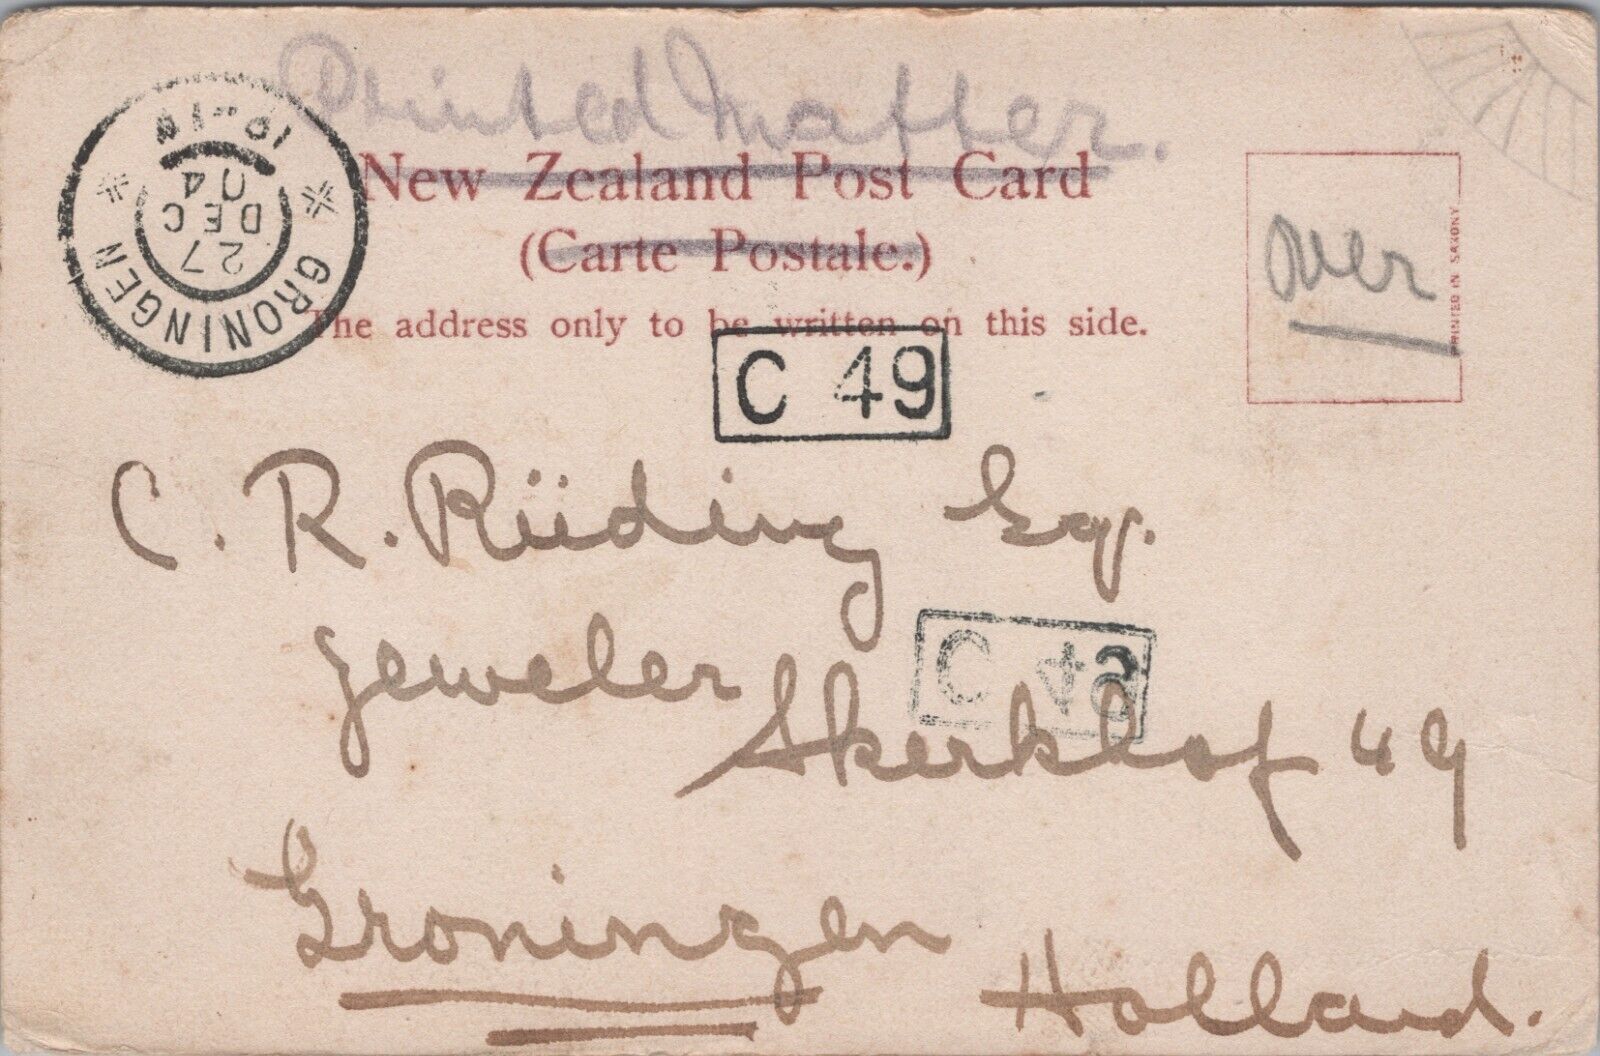 Printed Matter.
New Zealand Post Card
(Carte Postale.)
The address only to be written on this side.
GRONINGEN
27
DEC
04
Over
PRINTED IN SAXONY
C 49
C. R. Rüding Esq.
Jeweler
C 49
Akerkhof 49
Groningen
Holland.